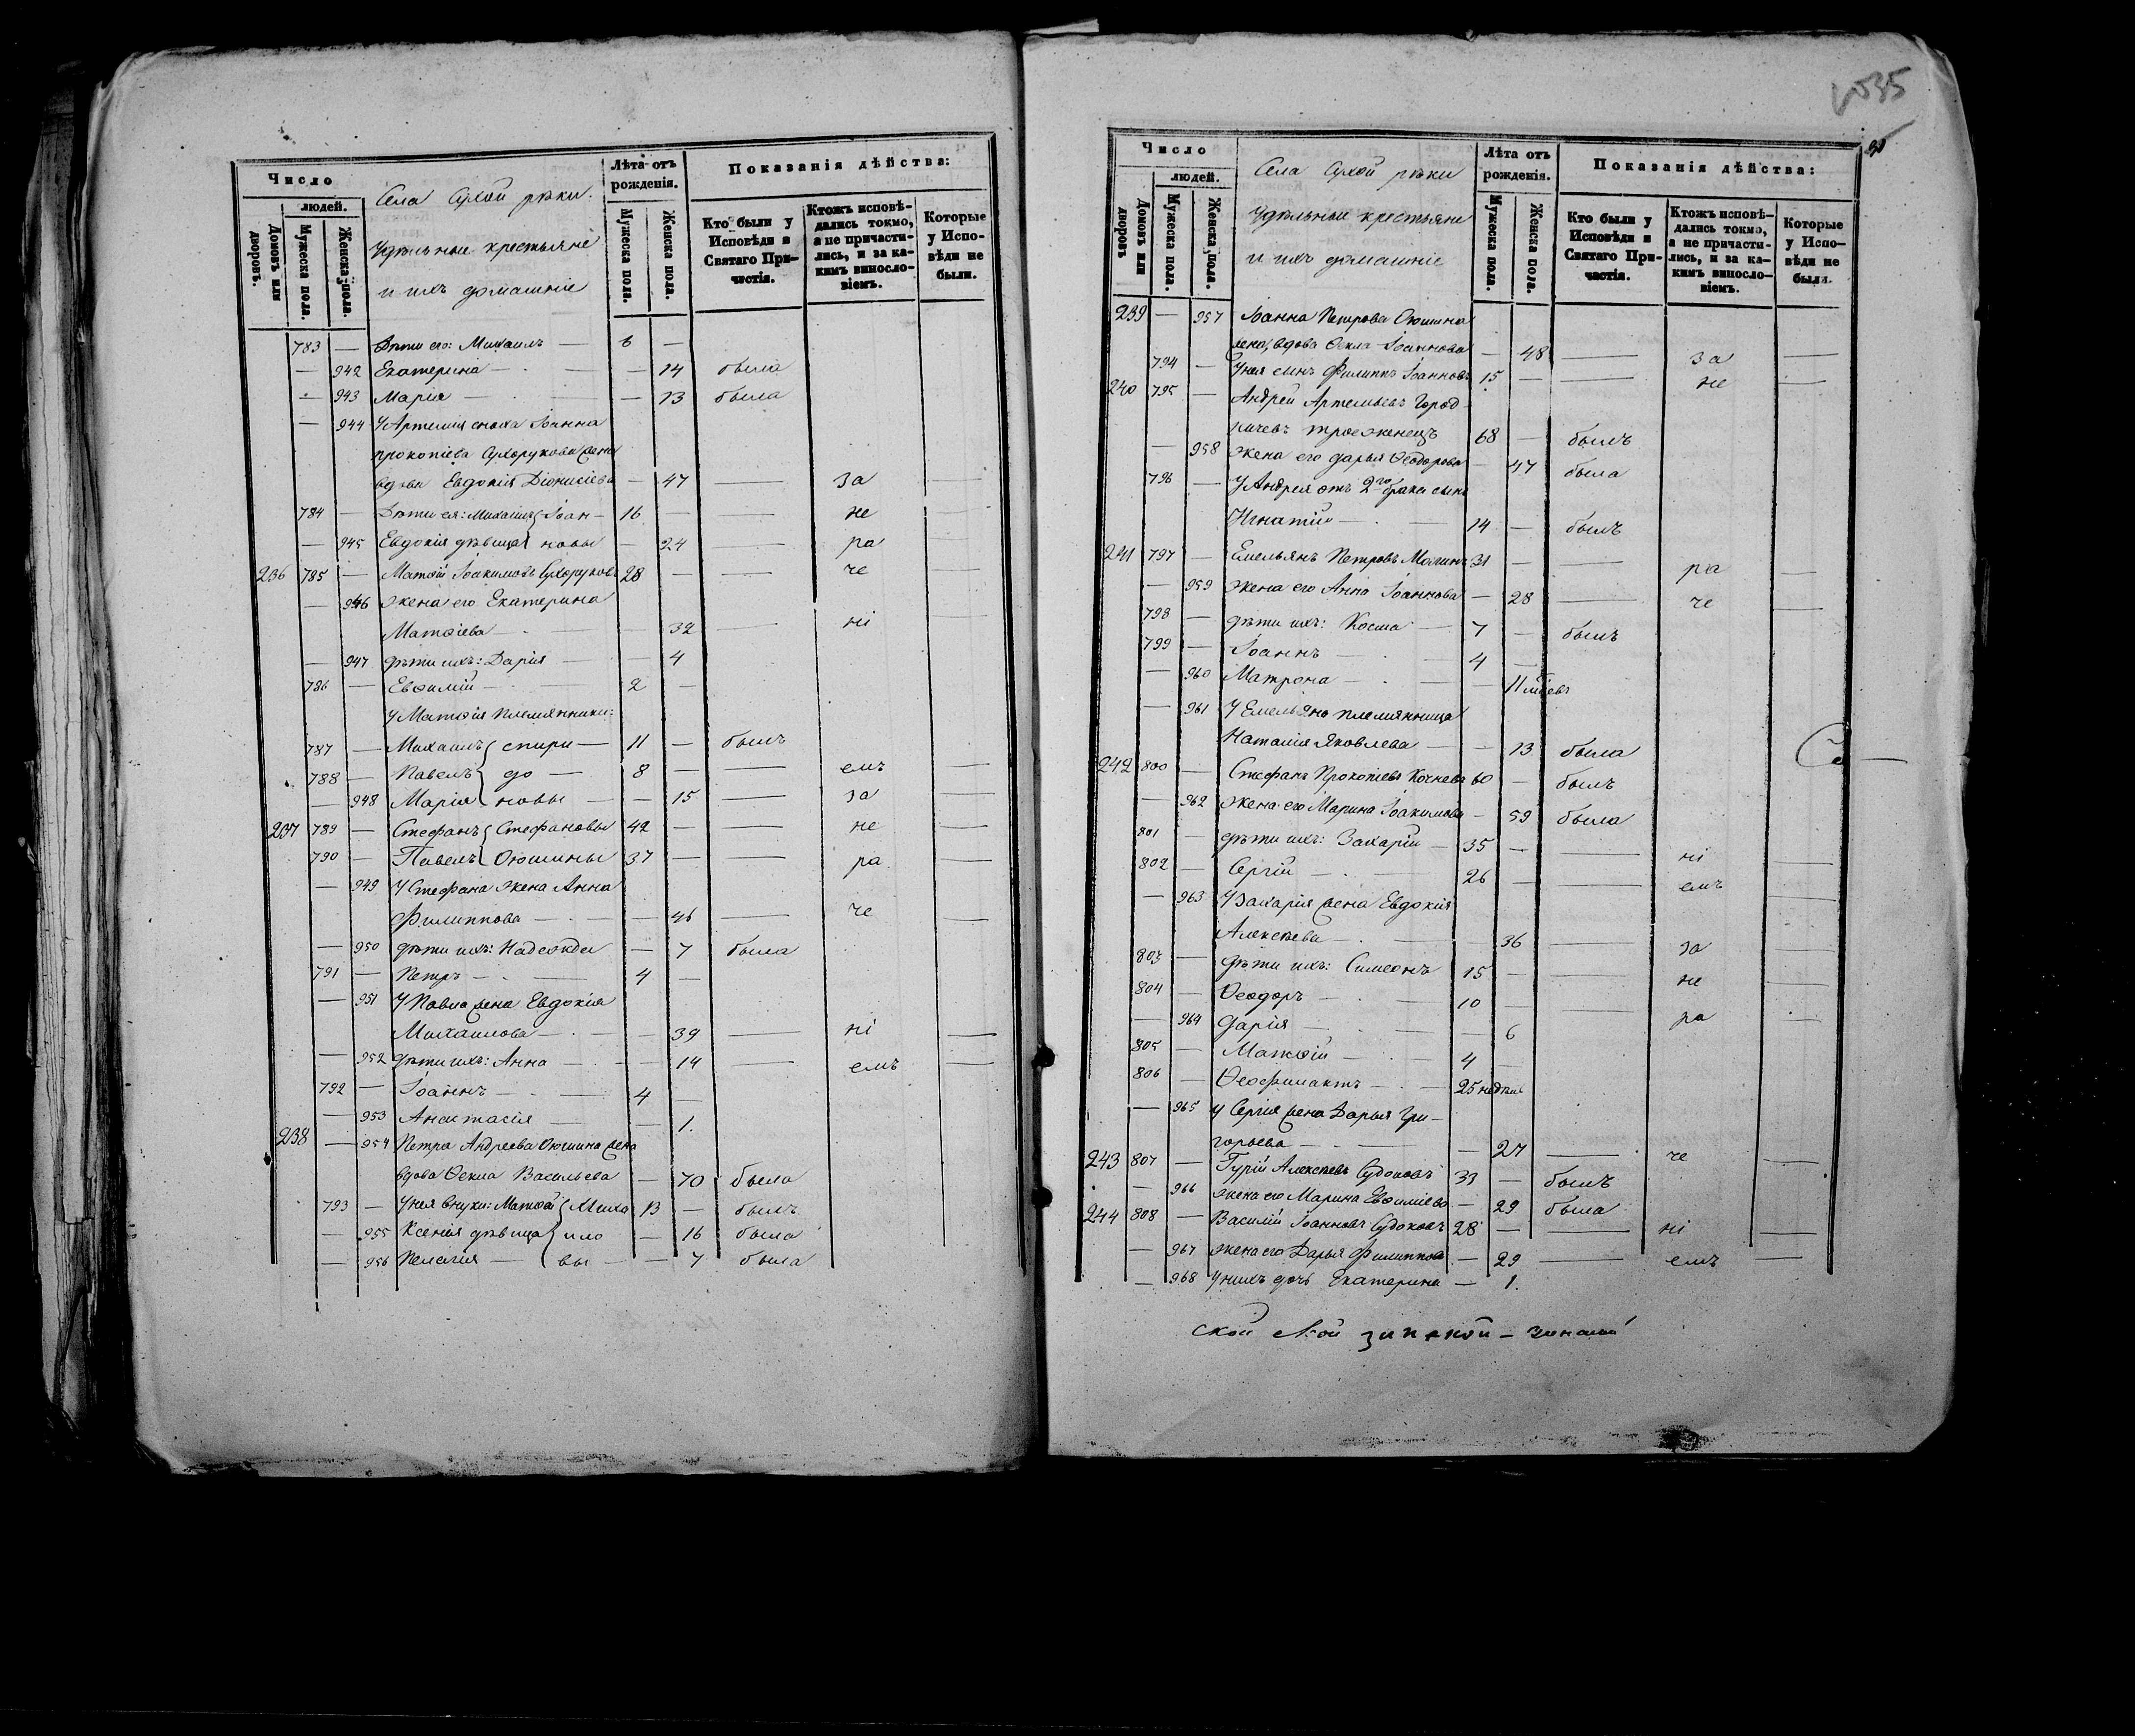 Число
людей.
Домовъ или дворовъ.
Мужеска пола.
Женска пола.
Села Сухой рѣки.
Удѣльные крестьяне
и ихъ домашніе
Лѣта отъ рожденія.
Мужеска пола.
Женска пола.
Показанія дѣйства:
Кто были у Исповѣди и Святаго Причастія.
Ктожъ исповѣдались токмо, а не причастились, и за какимъ винословіемъ.
Которые у Исповѣди не были.
783 — Дѣти его: Михаилъ — 6 —
— 942 Екатерина — — 14 была
— 943 Марія — — 13 была
— 944 У Артемія сноха Іоанна
Прокопіева Сухорукова жена
вдова Евдокія Діонисіева — 47 — за —
784 — Дѣти ея: Михаилъ Іоан— 16 — — не
— 945 Евдокія дѣвица новы — 24 — ра
236 785 — Матѳій Іоакимовъ Сухоруковъ 28 — — че
— 946 жена его Екатерина
Матѳіева — — 32 — ні —
— 947 дѣти ихъ: Дарія — — 4
786 — Евѳимій — 2 —
У Матѳія племянники:
787 — Михаилъ спири— 11 — былъ
788 — Павелъ до — 8 — — емъ —
— 948 Марія новы — — 15 — за —
237 789 — Стефанъ Стефановы 42 — — не —
790 — Павелъ Оюшины 37 — — ра —
— 949 У Стефана жена Анна
Филиппова — — 46 — че —
— 950 дѣти ихъ: Надежда — 7 была
791 — Петръ — 4 —
— 951 У Павла жена Евдокія
Михаилова — — 39 — ні —
— 952 дѣти ихъ: Анна — — 14 — емъ —
792 — Іоаннъ — 4 —
— 953 Анастасія — — 1.
238 — 954 Петра Андреева Оюшина жена
вдова Ѳекла Васильева — 70 была
793 — У нея внуки: Матѳій Миха 13 — былъ
— 955 Ксенія дѣвица ило — 16 была
— 956 Пелагія — вы — — 7 была
535
Число
людей.
Домовъ или дворовъ.
Мужеска пола.
Женска пола.
Села Сухой рѣки
Удѣльные крестьяне
и ихъ домашніе
Лѣта отъ рожденія.
Мужеска пола.
Женска пола.
Показанія дѣйства:
Кто были у Исповѣди и Святаго Причастія.
Ктожъ исповѣдались токмо, а не причастились, и за какимъ винословіемъ.
Которые у Исповѣди не были.
239 — 957 Іоанна Петрова Оюшина
жена, вдова Ѳекла Іоаннова — 48 — за —
794 — У нея сынъ Филиппъ Іоанновъ 15 — — не —
240 795 — Андрей Артемьевъ Город
ничевъ троеженецъ 68 — былъ
— 958 жена его Дарья Ѳеодорова — 47 была
796 — У Андрея отъ 2го брака сынъ
Игнатій — 14 — былъ
241 797 — Емельянъ Петровъ 31 — — ра —
— 959 жена его Анна Іоаннова — 28 — че —
798 — дѣти ихъ: Косма — 7 — былъ
799 — Іоаннъ — 4 —
— 960 Матрона — — 11 мѣсяцевъ
— 961 У Емельяна племянница
Наталія Яковлева — — 13 была
242 800 — Стефанъ Прокопіевъ Кочневъ 60 — былъ
— 962 жена его Марина Іоакимова — 59 была
801 — дѣти ихъ: Захарій — 35 — — ні —
802 — Сергій — 26 — — емъ —
— 963 У Захарія жена Евдокія
Алексѣева — — 36 — за —
803 — дѣти ихъ: Симеонъ 15 — — не —
804 — Ѳеодоръ — 10 — — ра —
— 964 Дарія — — 6
805 — Матѳій — 4 —
806 — Ѳеофилактъ — 25 недѣль
— 965 У Сергія жена Дарья Гри—
горьева — — 27 — че —
243 807 — Гурій Алексѣевъ Судоковъ 33 — былъ
— 966 жена его Марина Евѳиміева — 29 была
244 808 — Василій Іоанновъ Судоковъ 28 — — ні —
— 967 жена его Дарья Филиппова — 29 — емъ —
— 968 У нихъ дочь Екатерина — 1.